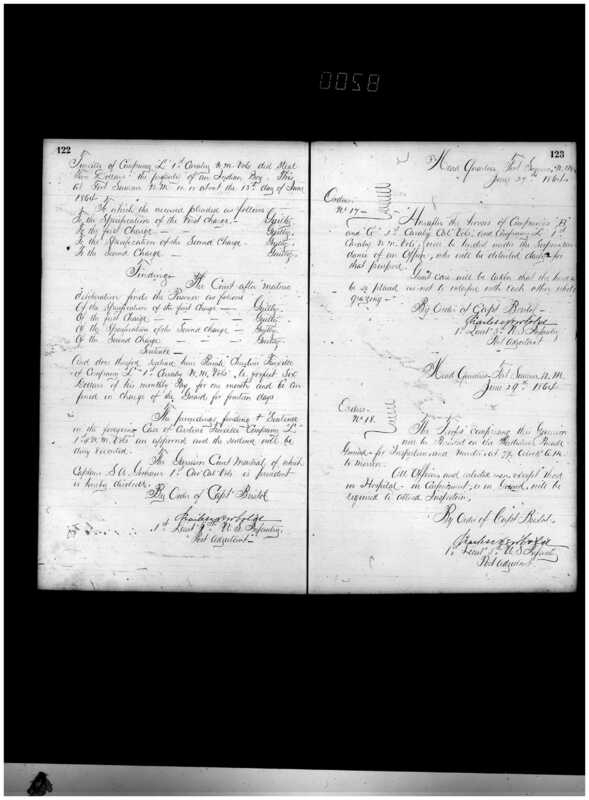 0028
122
of Company L 1st Cavalry N.M. Vols did steal
Dollars the property of an Indian Boy. This
at Fort Sumner N.M. on or about the day of June
1864
To which the accused pleaded as follows
To the Specification of the First Charge — Guilty
To the first Charge — Guilty
To the Specification of the Second Charge — Guilty
To the Second Charge — Guilty
Findings
The Court after mature
deliberation finds the Prisoner as follows
Of the Specification of the first Charge — Guilty
Of the first Charge — Guilty
Of the Specification of the Second Charge — Guilty
Of the Second Charge — Guilty
Sentence
And does therefore sentence him Private
of Company L 1st Cavalry N.M. Vols to forfeit Six
Dollars of his monthly Pay for one month and be con-
fined in charge of the Guard for fourteen days
The proceedings finding & Sentence
in the foregoing Case of Company L
1st N.M. Vols are approved and the sentence will be
duly executed.
The Garrison Court Martial of which
Captain 1st Cav Cal Vols is president
is hereby dissolved.
By Order of Capt Bristol
1st Lieut 5th U.S. Infantry
Post Adjutant
123
Head Quarters Fort Sumner N.M.
June 27th 1864
Orders
No 17
Hereafter the horses of Companies "B"
and 1st Cavalry Cal Vols, and Company L 1st
Cavalry N.M. Vols, will be herded under the Superinten-
dance of an Officer, who will be detailed daily for
that purpose.
Great care will be taken that the herds
be so placed as not to interfere with each other whilst
grazing
By Order of Capt Bristol
1st Lieut 5th U.S. Infantry
Post Adjutant
Head Quarters Fort Sumner N.M.
June 29th 1864
Orders
No 18.
The Troops comprising this Garrison
will be Paraded on the Parade
Ground for Inspection and Muster at o'clock A.M.
to morrow.
All Officers and enlisted men except those
in Hospital in Confinement, or on Guard, will be
required to attend Inspection.
By Order of Capt Bristol
1st Lieut 5th U.S. Infantry
Post Adjutant